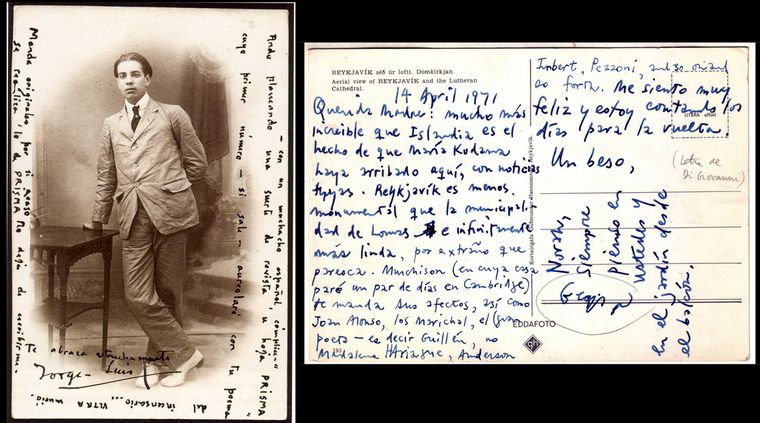 Ando planeando - con un muchacho español, cómplice - "PRISMA"
una suerte de revista u hoja
cuyo primer número - si sale - aureolaré con tu poema
del incensario... VLTRA murió.
Manda originales por si acaso
se realiza lo de PRISMA. No dejes de escribirme.
Te abraza estrechamente
Jorge-Luis
REYKJAVÍK séð úr lofti. Dómkirkjan.
Aerial view of REYKJAVÍK and the Lutheran
Cathedral.
14 April 1971
Querida Madre: mucho más
increíble que Islandia es el
hecho de que María Kodama
haya arribado aquí, con noticias
tuyas. Reykjavík es menos
monumental que la municipali-
dad de Lomas e infinitamente
más linda, por extraño que
parezca. Murchison (en cuya casa
paré un par de días en Cambridge)
te manda sus afectos, así como
Joan Alonso, los Marichal, el (gran
poeta - es decir Guillén, no
Madalena Harriague, Anderson
Imbert, Pezzoni, and so on and
so forth. Me siento muy
feliz y estoy contando los
días para la vuelta.
Un beso,
(Letra de
Di Giovanni)
Norah,
Siempre
pienso en
ustedes y
en el jardín desde
el balcón.
Georgie
EDDAFOTO